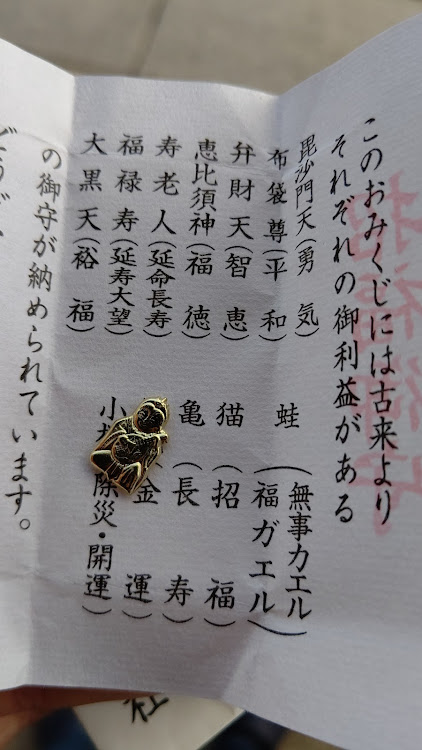 このおみくじには古来より
それぞれの御利益がある
毘沙門天(勇気)
布袋尊(平和)
弁財天(智恵)
恵比須神(福徳)
寿老人(延命長寿)
福禄寿(延寿大望)
大黒天(裕福)
蛙(無事カエル
福ガエル)
猫(招福)
亀(長寿)
金運)
小
除災・開運)
の御守が納められています。